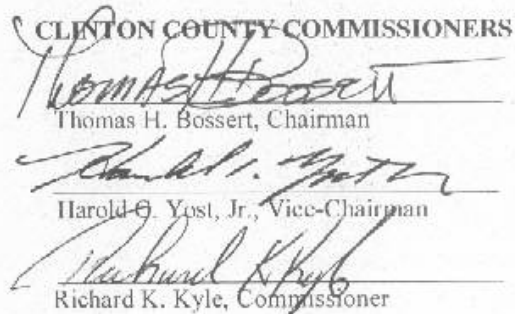 CLINTON COUNTY COMMISSIONERS
Thomas H Bossert
Thomas H. Bossert, Chairman
Harold G. Yost, Jr., Vice-Chairman
Richard K Kyle
Richard K. Kyle, Commissioner